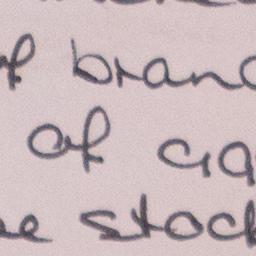 of bran
of ca
stock